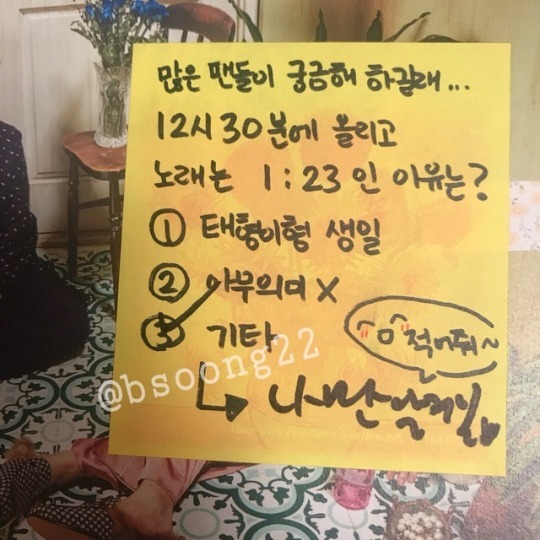 많은 팬들이 궁금해 하길래...
12시 30분에 올리고
노래는 1:23인 이유는?
① 태형이형 생일
② 아무의미 X
③ 기타
^ㅁ^ 적어줘~
@bsoong22
↳ 나만